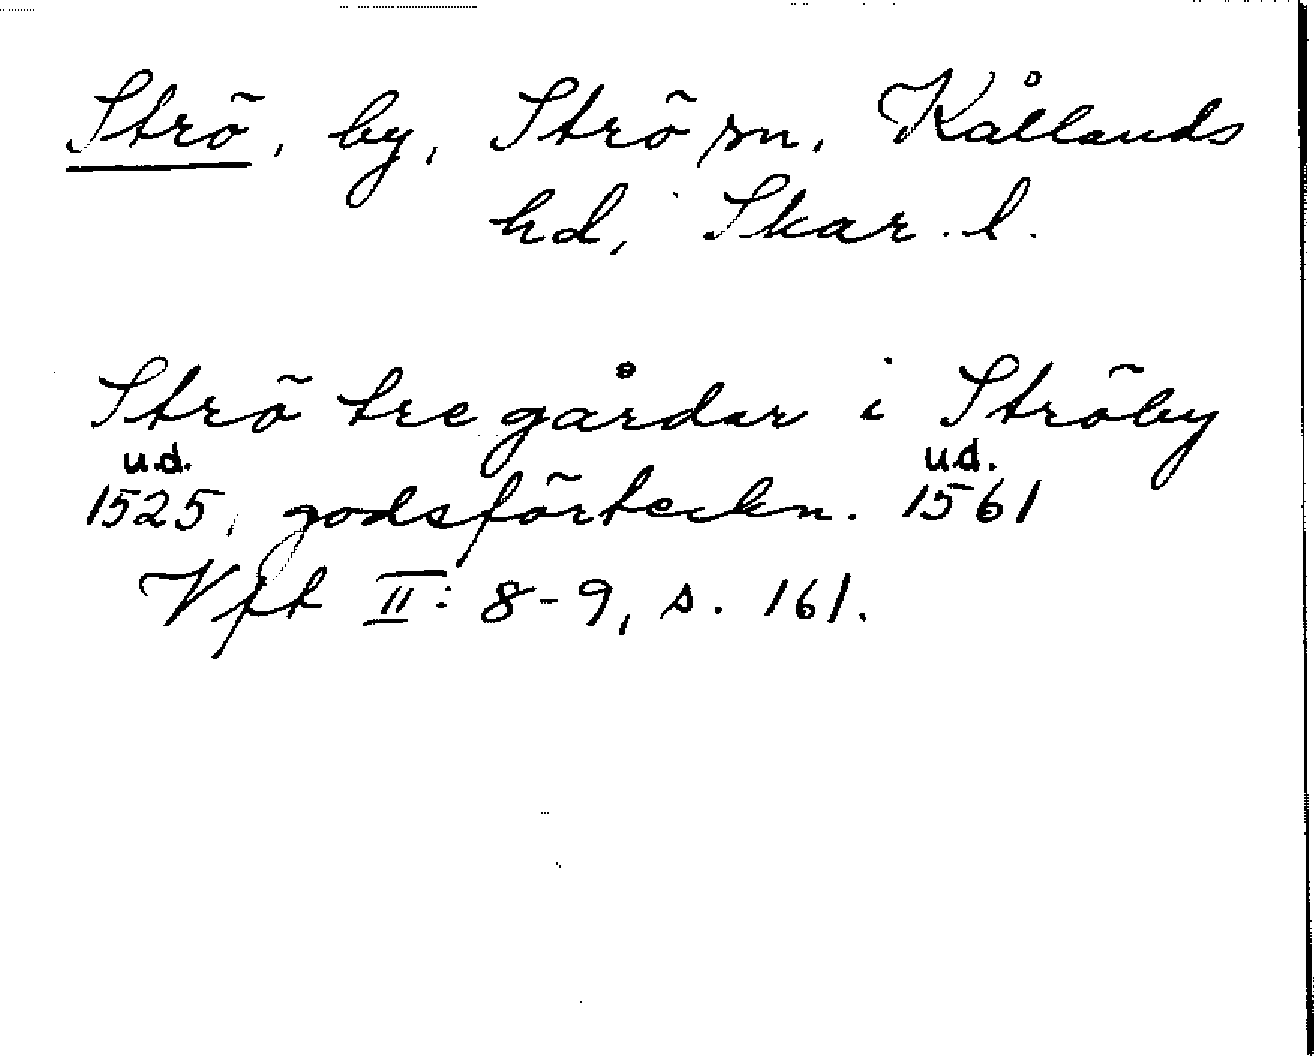 Strö, by, Strö sn, Kållands
hd, Skar. l.
Strö tre gårdar i Ströby
u.d. u.d.
1525, godsförteckn. 1561
Vft II: 8-9, s. 161.